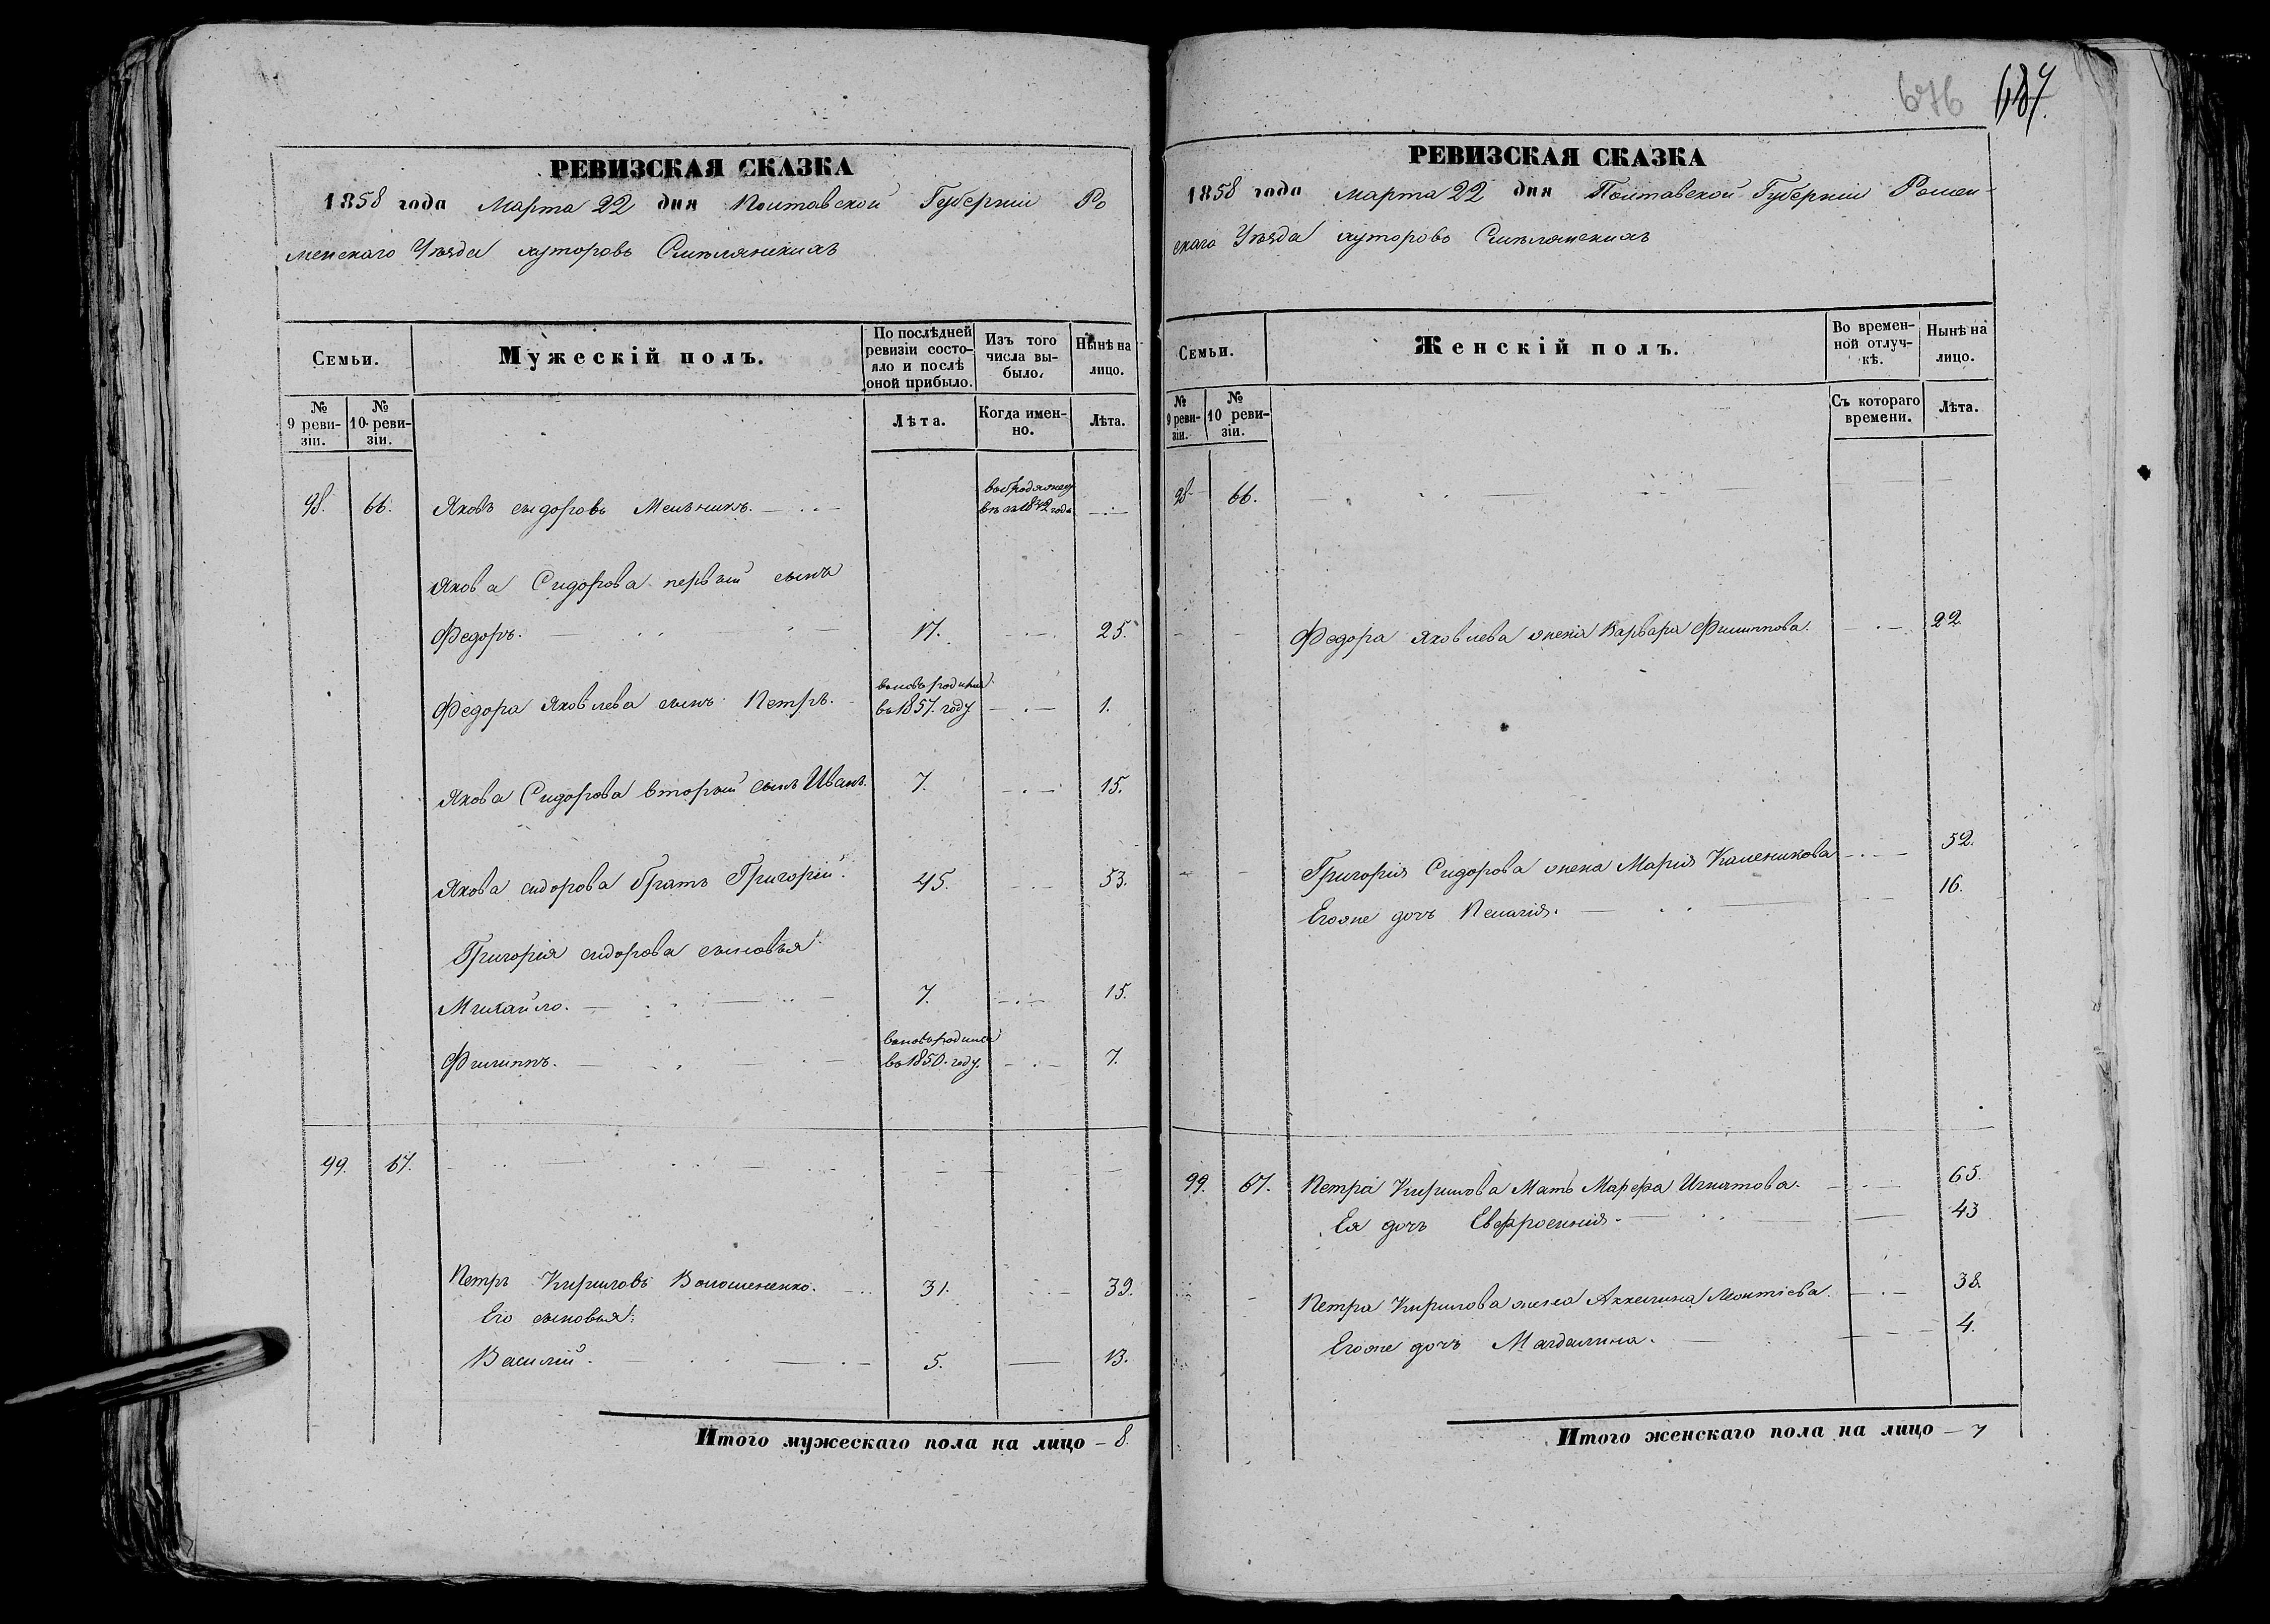 676 687
РЕВИЗСКАЯ СКАЗКА
1858 года Марта 22 дня Полтавской Губерніи Ро
менскаго Уѣзда хуторовъ Смѣлянскихъ
Семьи.
Мужескій полъ.
По послѣдней ревизіи состояло и послѣ оной прибыло.
Изъ того числа выбыло.
Нынѣ на лицо.
№ 9 ревизіи.
№ 10 ревизіи.
Лѣта.
Когда именно.
Лѣта.
98. 66. Яковъ Сидоровъ Мельникъ.
въ 1842 года
Якова Сидорова первый сынъ
Федоръ. 17. 25.
Федора Яковлева сынъ Петръ. вновь родился въ 1857. году 1.
Якова Сидорова вторый сынъ Иванъ. 7. 15.
Якова Сидорова братъ Григорій. 45. 53.
Григорія Сидорова сыновья:
Михайло. 7. 15.
Филиппъ. вновь родился въ 1850. году. 7.
99. 67.
Петръ Кириловъ Волошененко. 31. 39.
Его сыновья:
Василій. 5. 13.
Итого мужескаго пола на лицо – 8.
РЕВИЗСКАЯ СКАЗКА
1858 года Марта 22 дня Полтавской Губерніи Ромен-
скаго Уѣзда хуторовъ Смѣлянскихъ
Семьи.
Женскій полъ.
Во временной отлучкѣ.
Нынѣ на лицо.
№ 9 ревизіи.
№ 10 ревизіи.
Съ котораго времени.
Лѣта.
98 66.
Федора Яковлева жена Варвара Филиппова. 22.
Григорія Сидорова жена Марія Каленикова 52.
Егоже дочь Пелагія. 16.
99. 67. Петра Кирилова Мать Марфа Игнатова. 65.
Ея дочь Евфросинія. 43
Петра Кирилова жена Аккилина Леонтіева. 38.
Егоже дочь Магдалина. 4.
Итого женскаго пола на лицо – 7